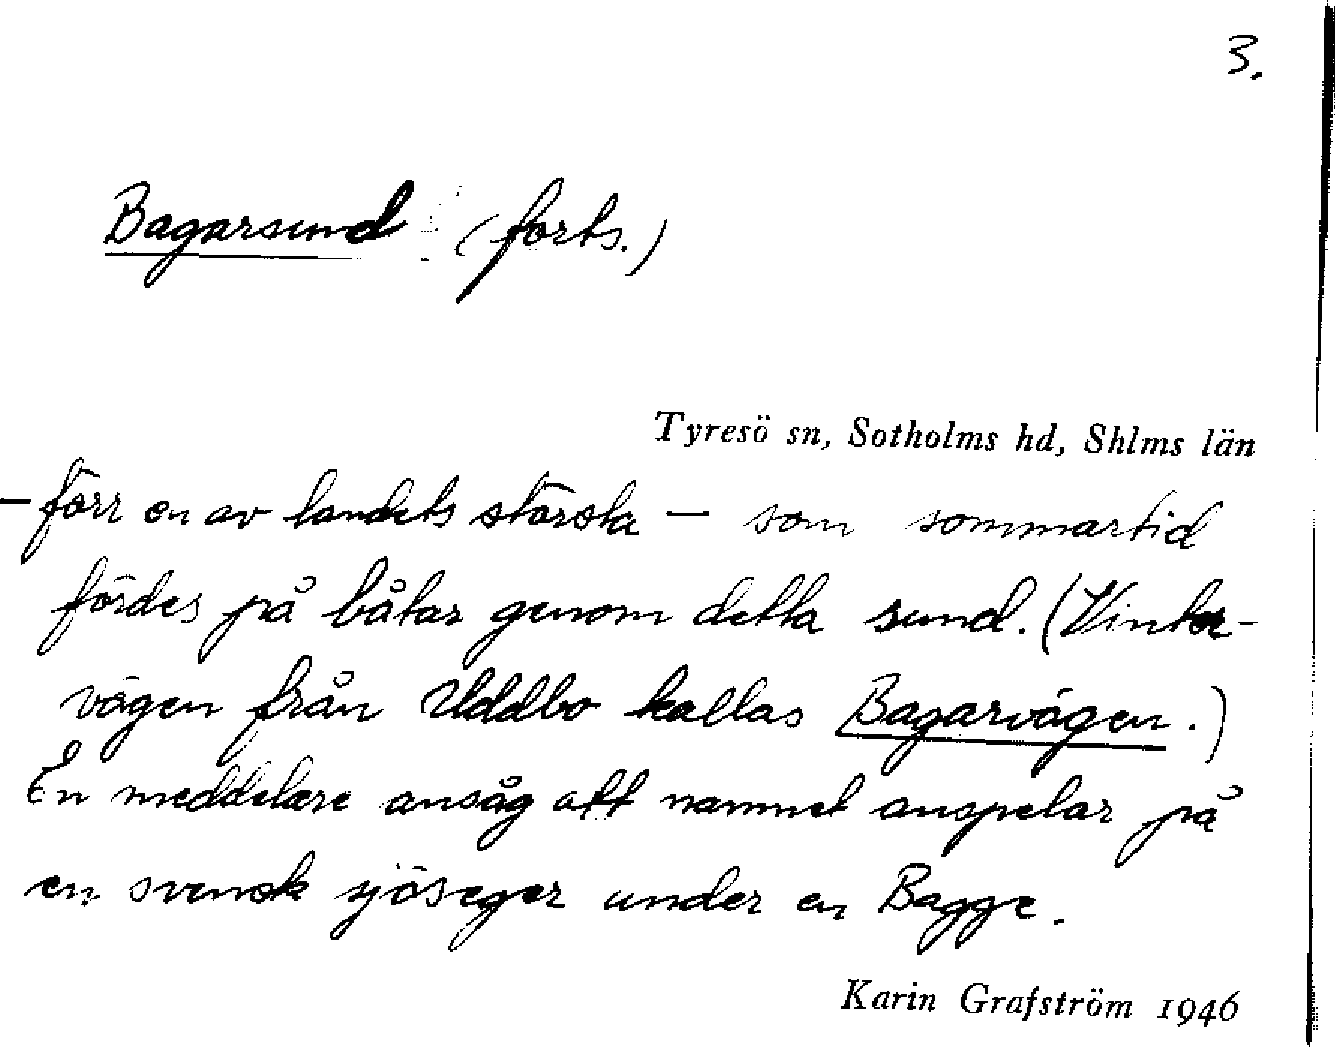 3.
Bagarsund (forts.)
Tyresö sn, Sotholms hd, Shlms län
— förr en av landets största — som sommartid
fördes på båtar genom detta sund. (Vinter-
vägen från Uddbo kallas Bagarvägen.)
En meddelare ansåg att namnet anspelar på
en svensk sjöseger under en Bagge.
Karin Grafström 1946